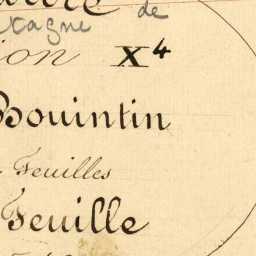 de
tagne
ion X4
Bouintin
Feuilles
Feuille